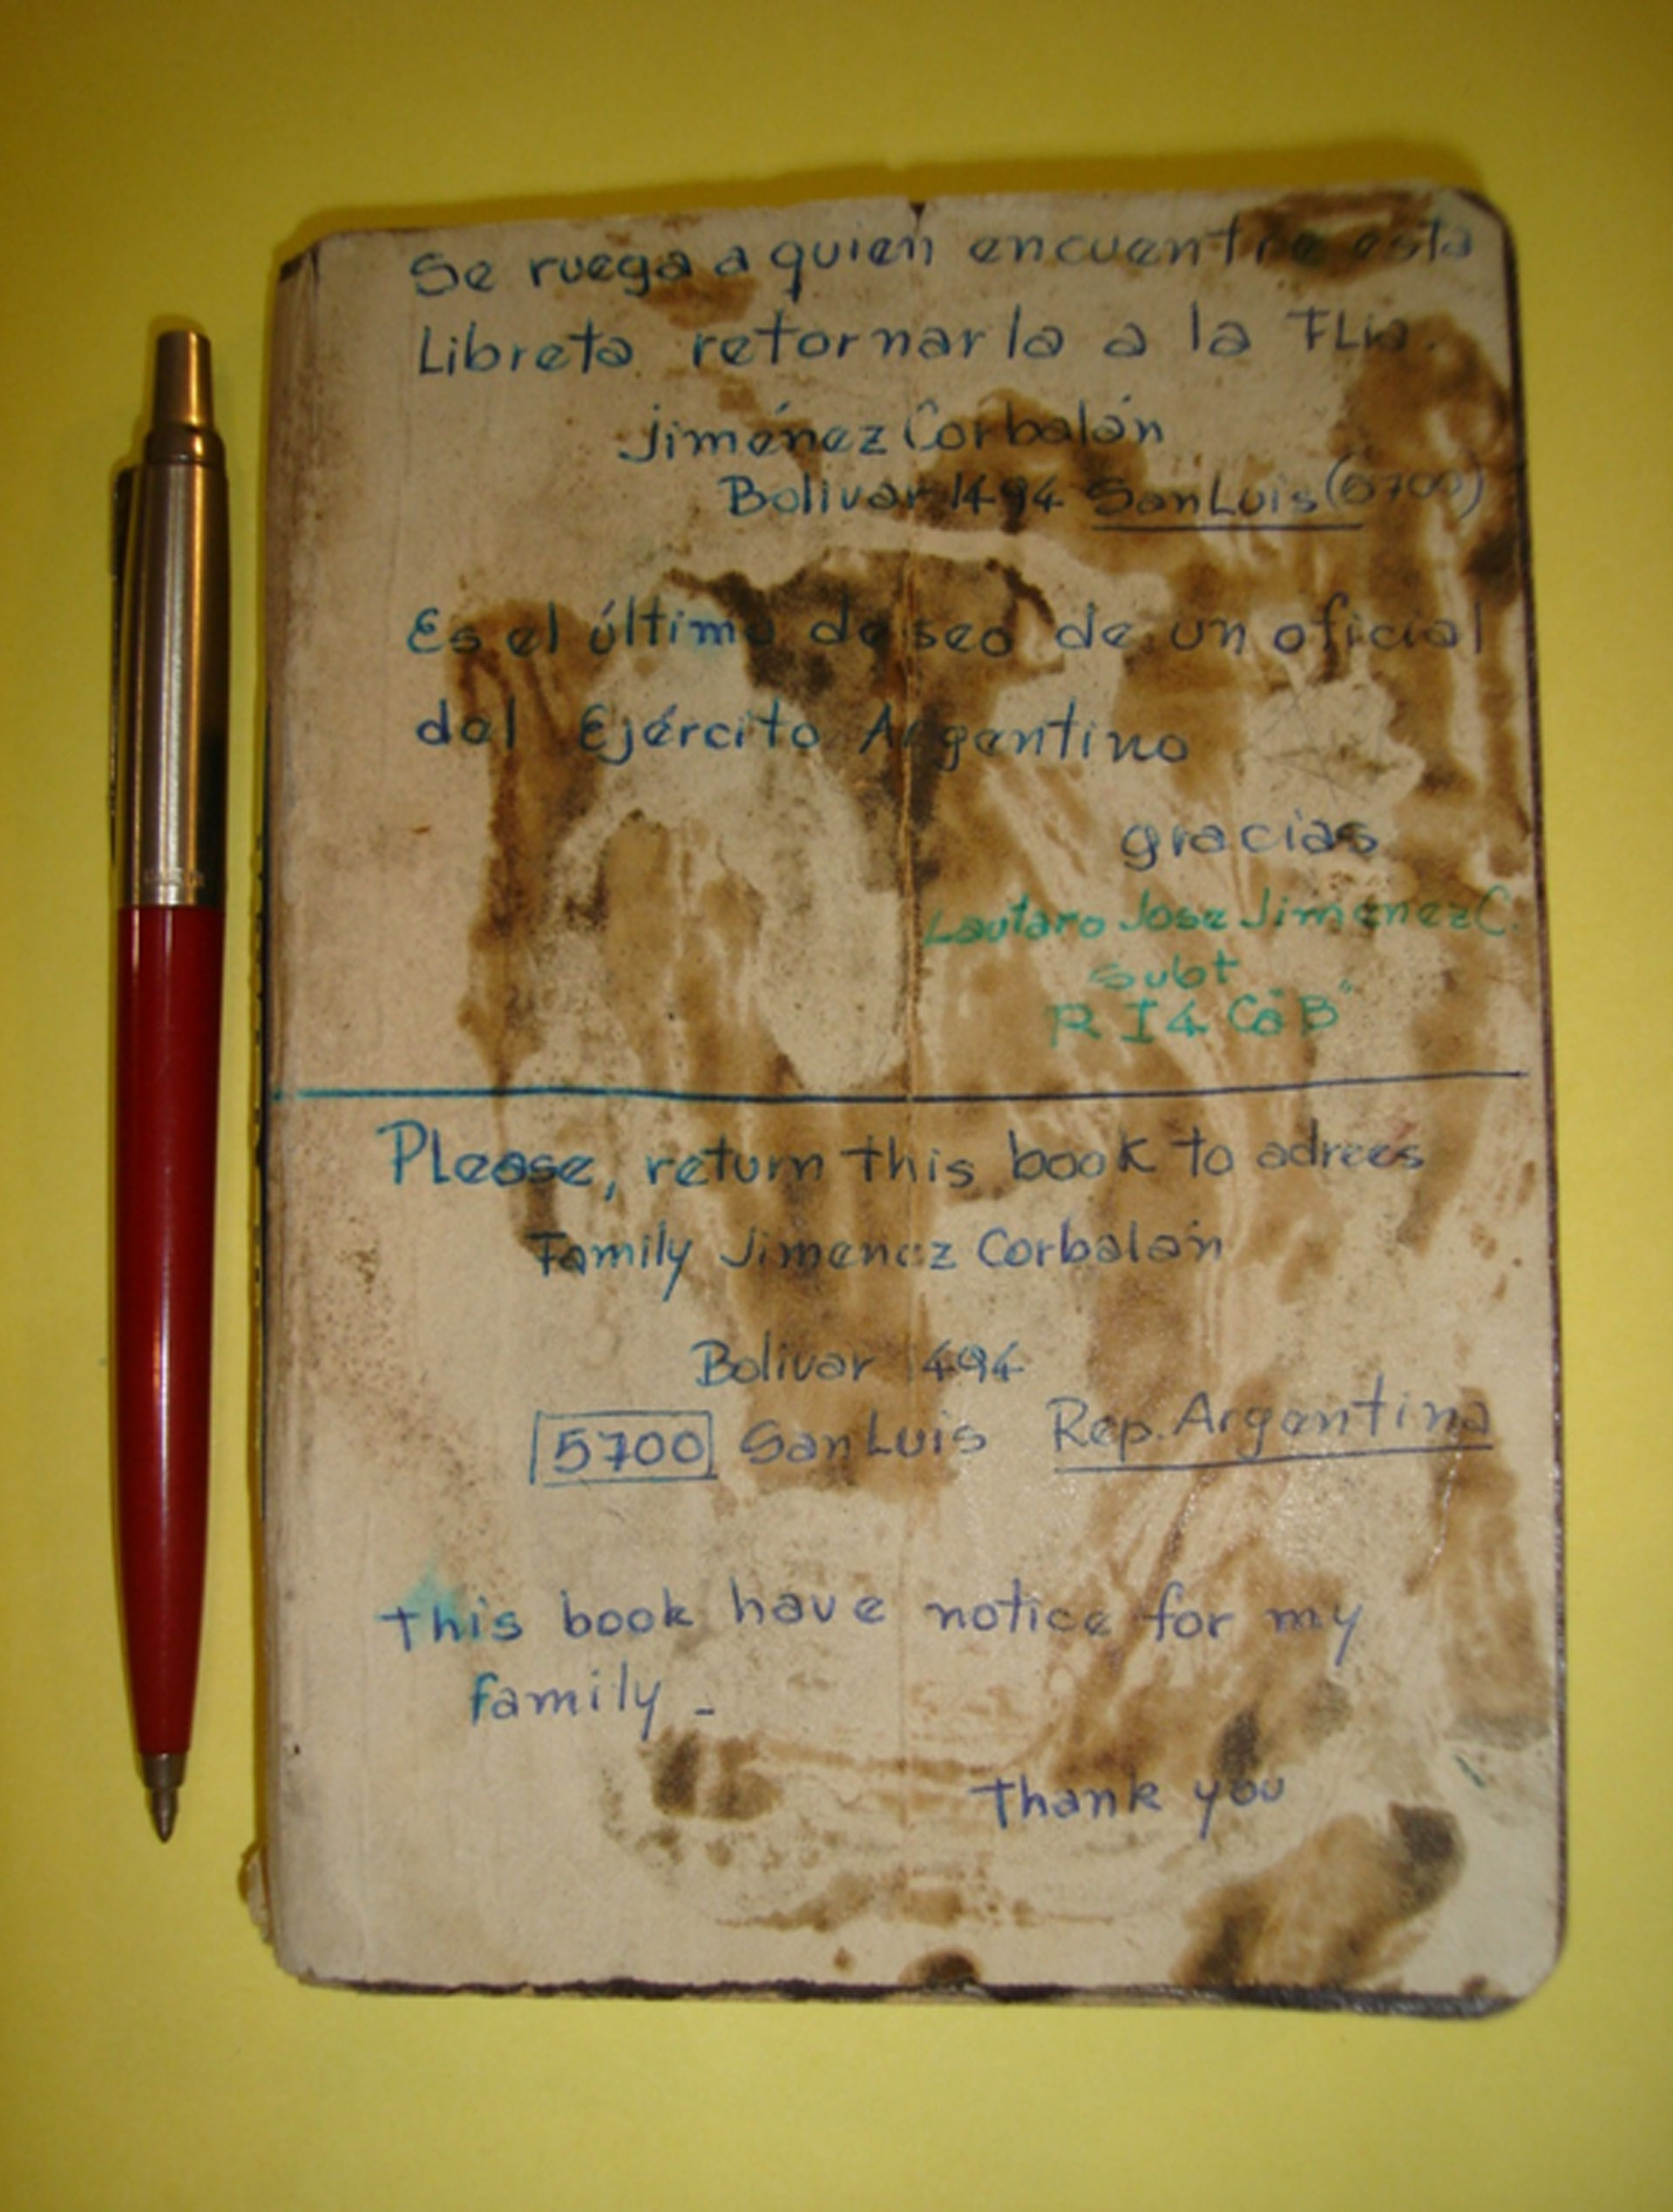 Se ruega a quien encuentre esta
Libreta retornarla a la FLia.
Jiménez Corbalán
Bolivar 1494 San Luis (5700)
Es el último deseo de un oficial
del Ejército Argentino
gracias
Lautaro Jose Jimenez C.
Subt
R I 4 Ca "B"
Please, return this book to adrees
Family Jimenez Corbalán
Bolivar 1494
5700 San Luis Rep. Argentina
this book have notice for my
family -
thank you